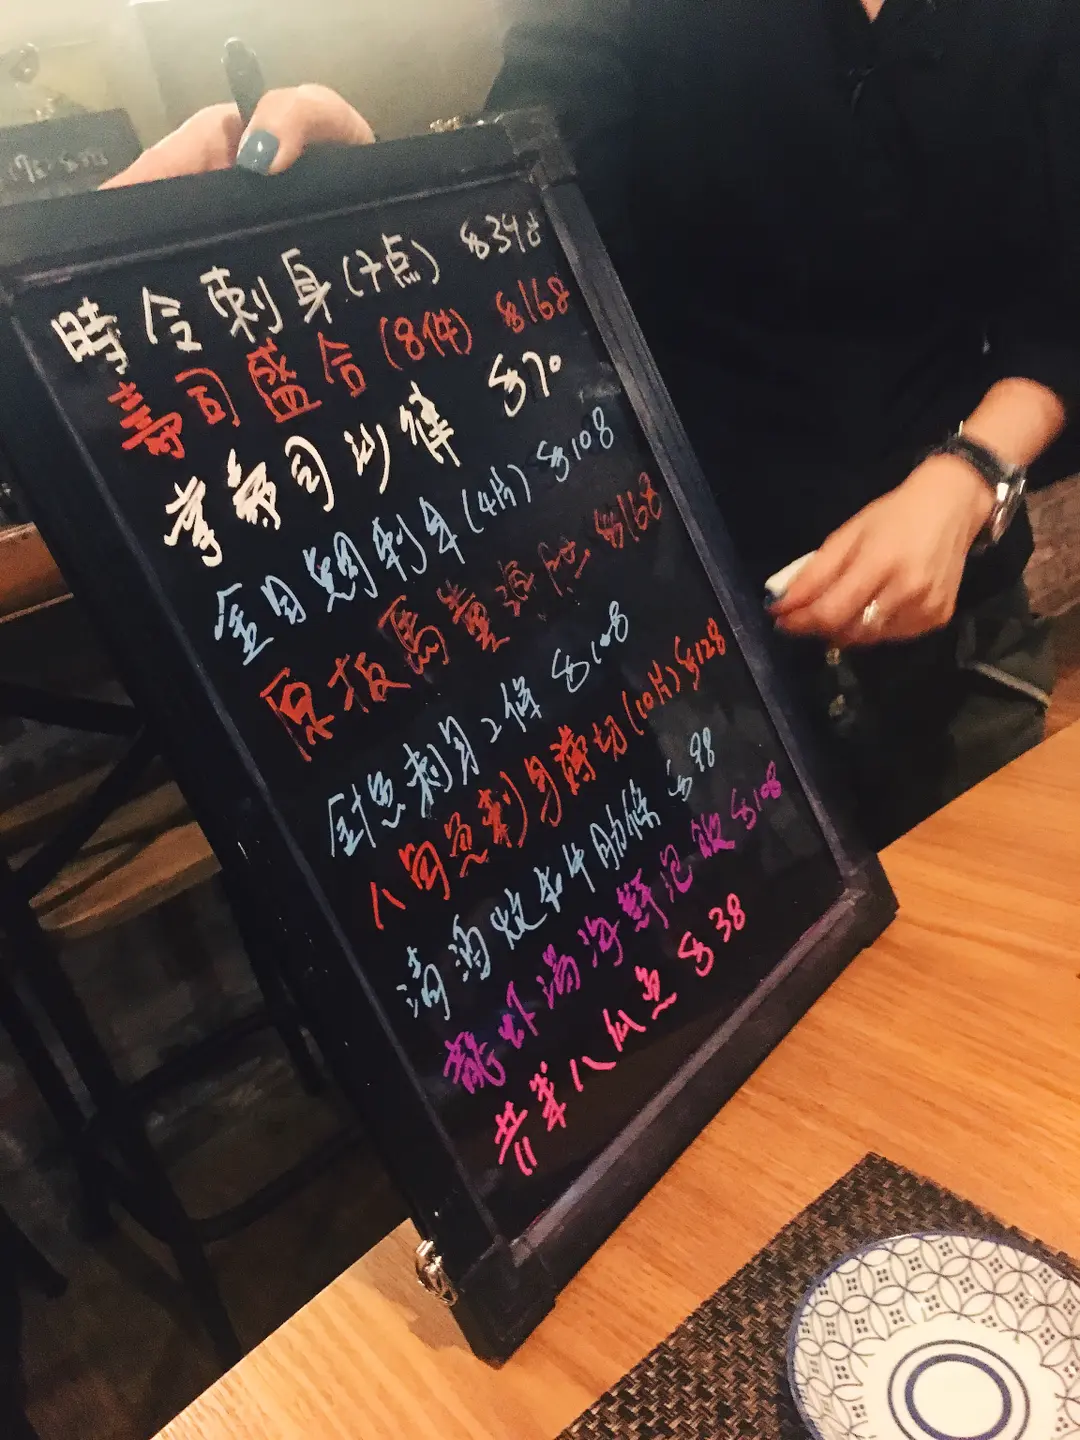 時令刺身(十点) $348
壽司盛合(8件) $168
掌壽司沙律 $70
金目鯛刺身(4片) $108
原板馬糞海胆 $168
針魚刺身2條 $108
八角魚刺身薄切(10片) $128
清酒煮牛肋條 $98
龍虾湯海鮮泡飯 $108
芥辛八爪魚 $38